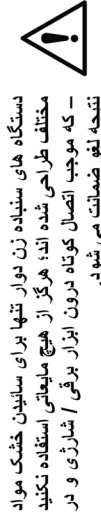 دستگاه های سنباده زن دوار تنها برای سائیدن خشک مواد
مختلف طراحی شده اند؛ هرگز از هیچ مایعاتی استفاده نکنید
– که موجب اتصال کوتاه درون ابزار برقی / شارژی و در
نتیجه لغو ضمانت می شود.